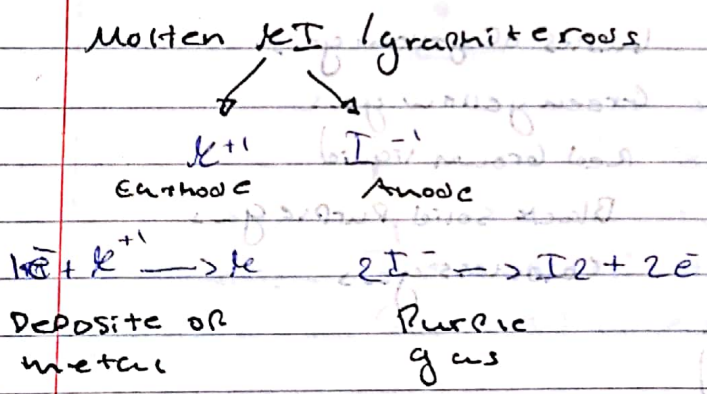 Molten KI / graphite rods
K+1 I-1
Cathode Anode
1e̅ + K+1 → K 2I- → I2 + 2e̅
Deposite of Purple
metal gas